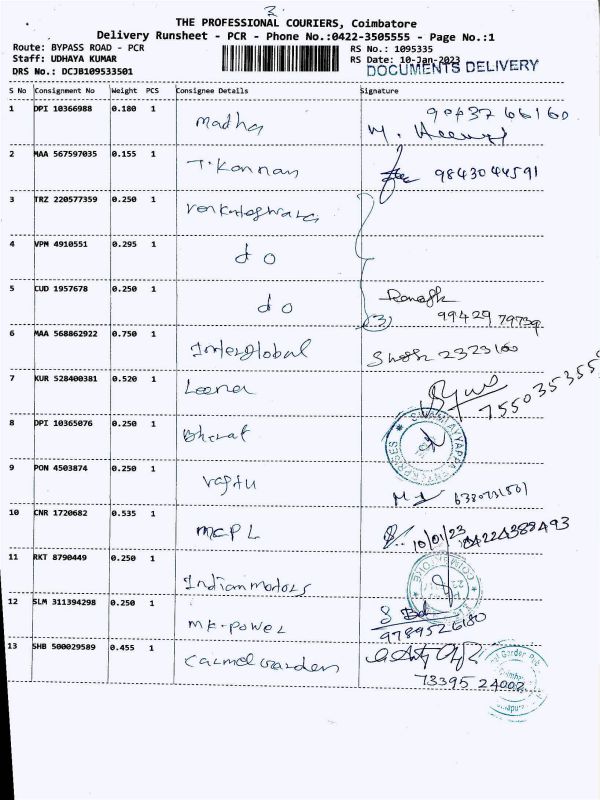 3
THE PROFESSIONAL COURIERS, Coimbatore
Delivery Runsheet - PCR - Phone No.:0422-3505555 - Page No.:1
Route: BYPASS ROAD - PCR
Staff: UDHAYA KUMAR
DRS No.: DCJB109533501
RS No.: 1095335
RS Date: 10-Jan-2023
DOCUMENTS DELIVERY
S No Consignment No Weight PCS Consignee Details Signature
1 DPI 10366988 0.180 1 madha
2 MAA 567597035 0.155 1 T.Kannan 9843044591
3 TRZ 220577359 0.250 1
4 VPM 4910551 0.295 1 do
5 CUD 1957678 0.250 1 do
(3) 99429 79739
6 MAA 568862922 0.750 1 Interglobal 2323160
7 KUR 528400381 0.520 1 Leena 7550353555
8 DPI 10365076 0.250 1 Bharat
SWAMI AYYAPPA ENTERPRISES
9 PON 4503874 0.250 1
10 CNR 1720682 0.535 1 MCPL 10/01/23
11 RKT 8790449 0.250 1 Indian motors
12 SLM 311394298 0.250 1 mk-power 9789526180
13 SHB 500029589 0.455 1 Carmel Garden
73395 24002